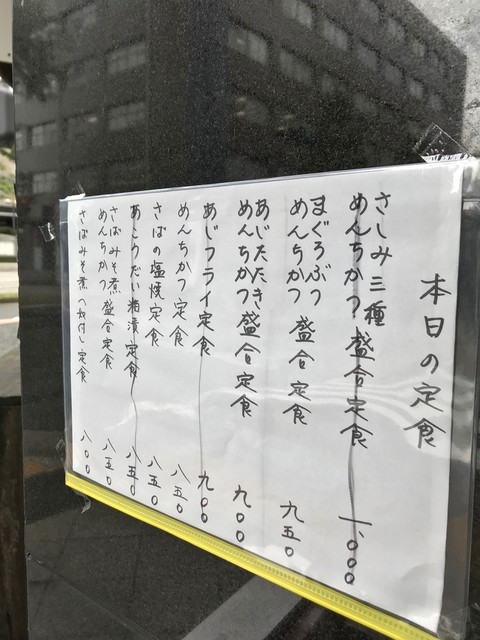 本日の定食
さしみ三種
めんちかつ 盛合定食 一、〇〇〇
まぐろぶつ
めんちかつ 盛合定食 九五〇
あじたたき
めんちかつ 盛合定食 九〇〇
あじフライ定食 九〇〇
めんちかつ定食 八五〇
さばの塩焼定食 八五〇
あこうだい粕漬定食 八五〇
さばみそ煮
めんちかつ 盛合定食 八五〇
さばみそ煮 定食 八〇〇